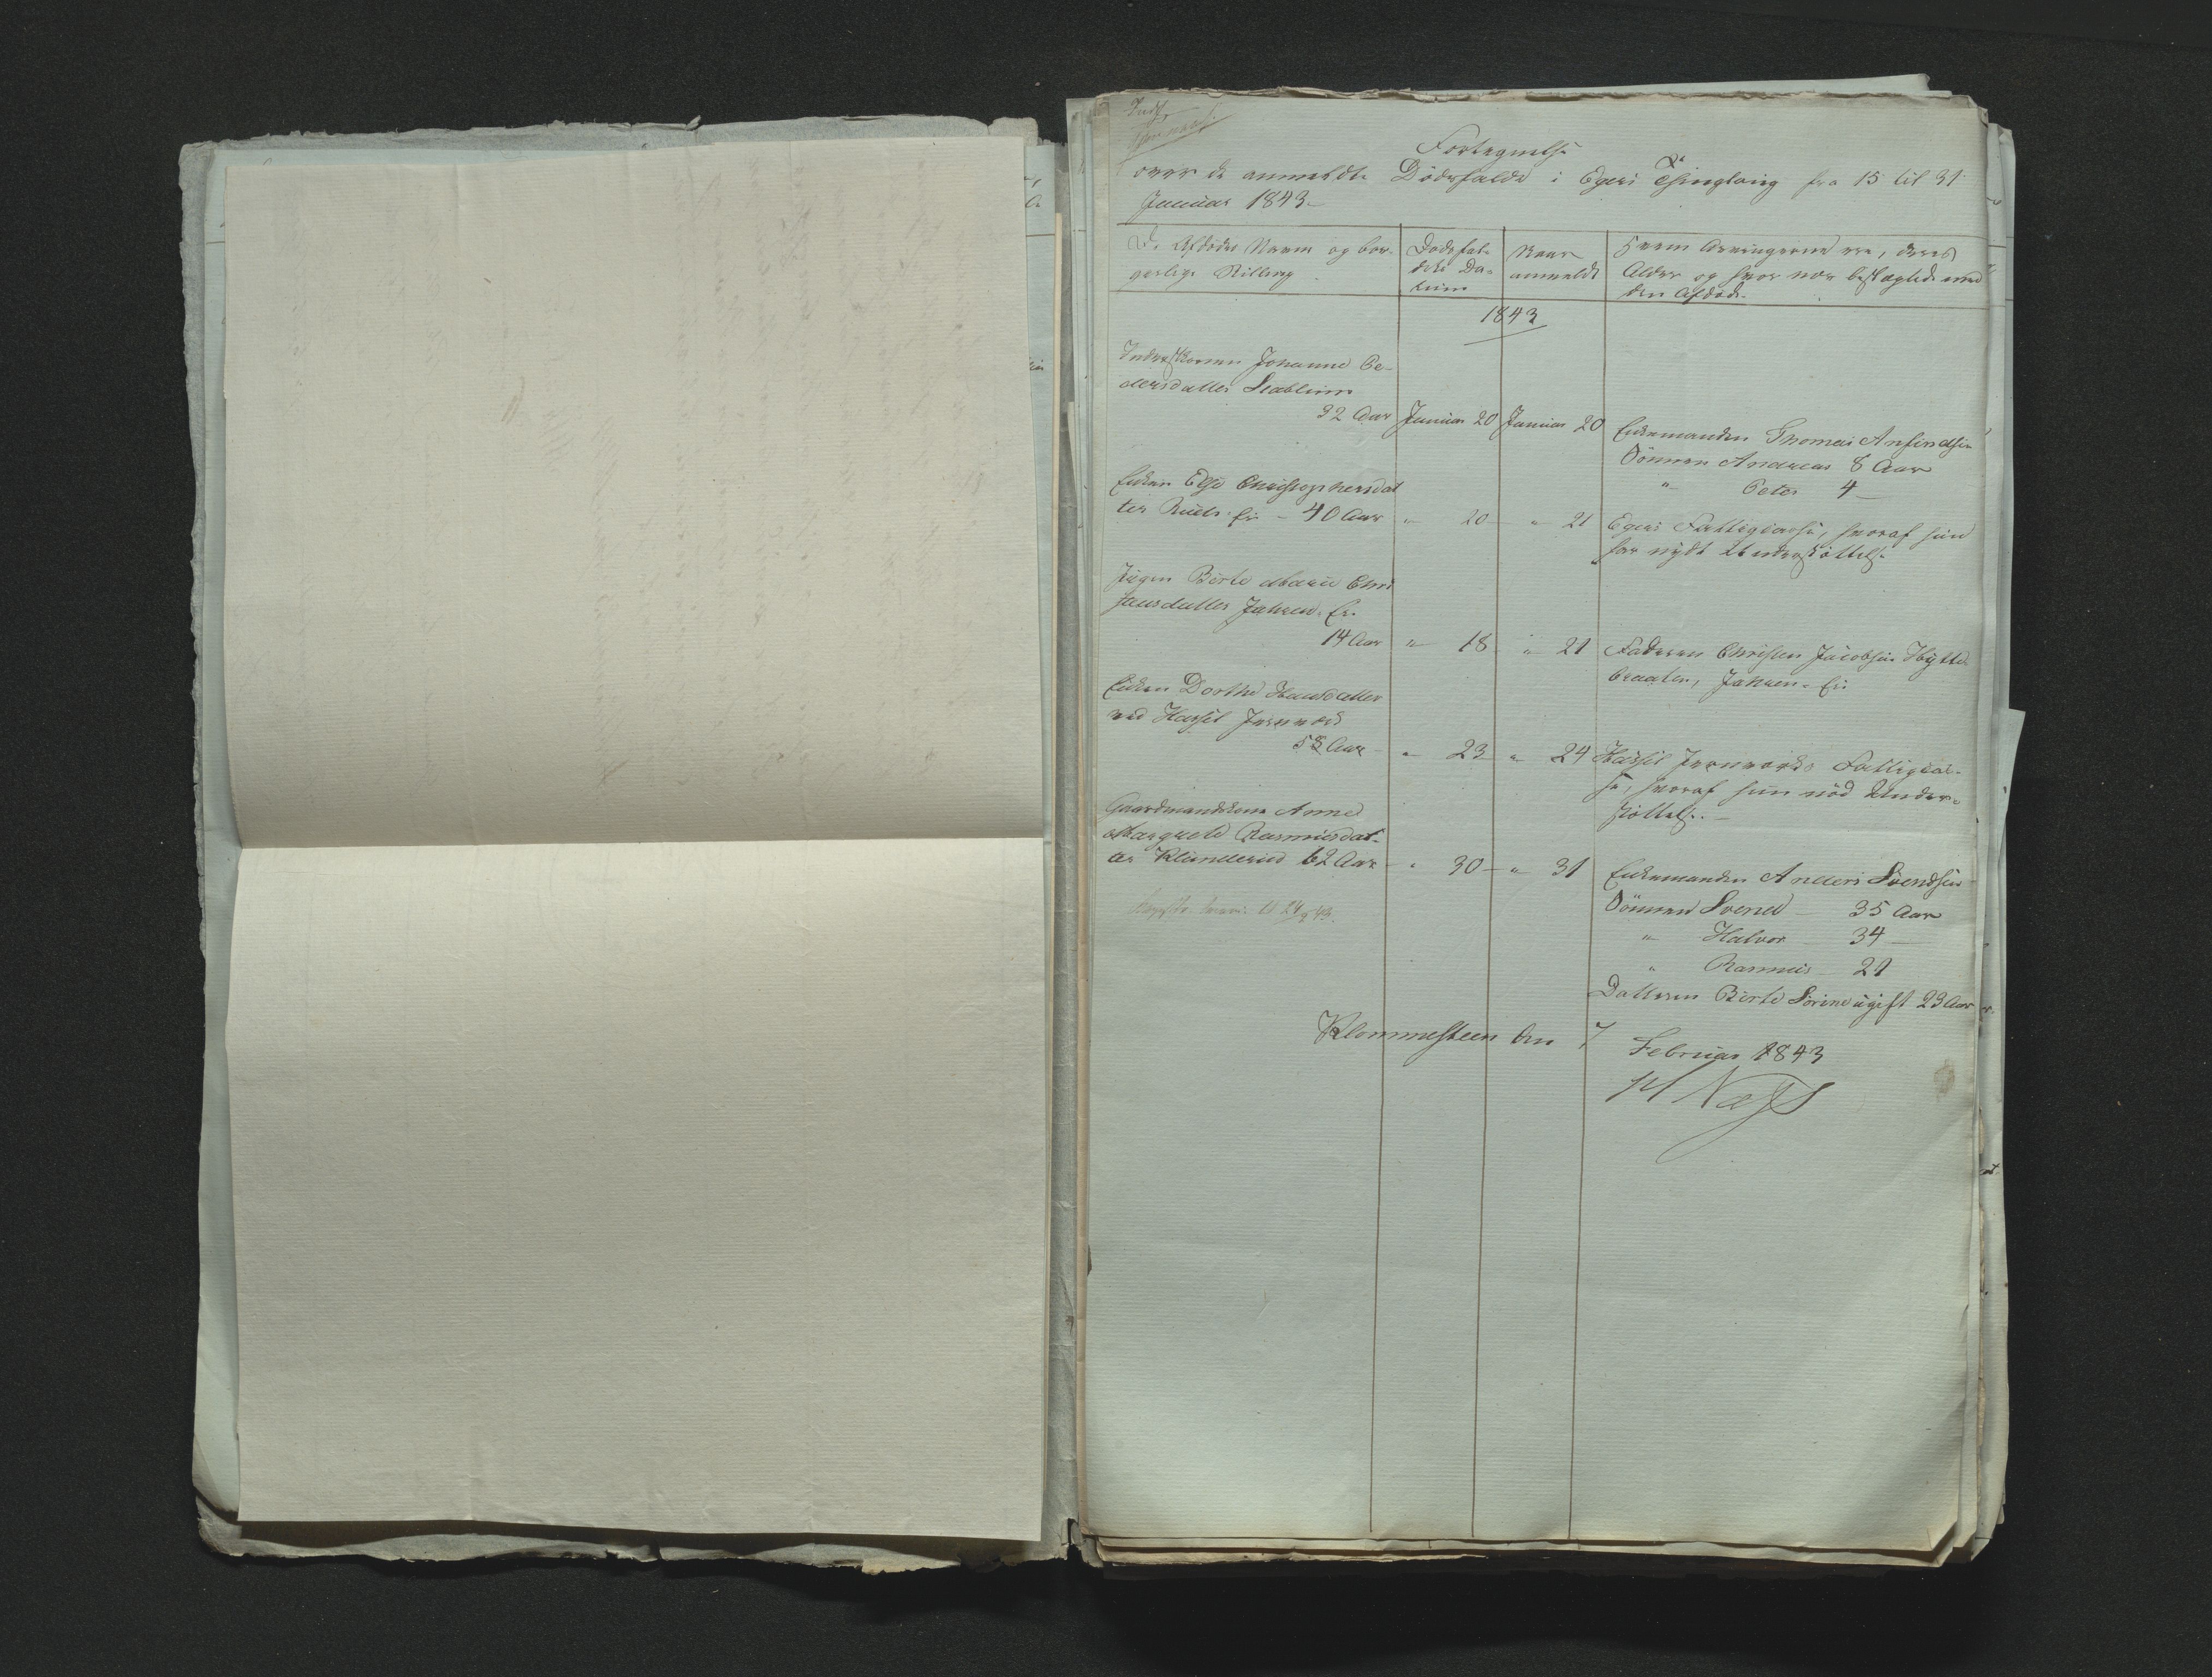 Fortegnelse
over de anmeldte Dödsfalde i Egers Thinglaug fra 15 til 31
Januar 1843-
De Afdödes Navne og bor-
gerlige Stilling
Dödsfal-
dets Da-
tum
Naar
anmeldt
Hvem Arvingerne ere, deres
Alder og hvor nær beslægtede med
den Afdöde-
1843
Johanne Pe-
dersdatter Stablum
32 Aar Januar 20 Januar 20
Enkemanden Thomas Anfindsen
Sönnen Andreas 8 Aar
" Peter 4 -
Enken Else Christophersdat
ter Ruds Eie - 40 Aar " 20 " 21
Egers Fattigcasse, hvoraf hun
har nydt Understöttelse
Pigen Birte Marie Chri
stensdatter Jahren. Eie
14 Aar " 18 " 21
Faderen Christen Jacobsen Hytte
braaten, Jahren. Eie
Enken Dorthe Hansdatter
ved Hassel Jernværk
58 Aar - " 23 " 24
Hassel Jernværks Fattigcas-
se, hvoraf hun nöd Under-
stöttelse. -
Gaardmandskone Anne
Margrete Rasmusdat-
ter Klunderud 62 Aar - " 30 - " 31
Enkemanden Anders Svendsen
Sönnen Svend - 35 Aar
" Halvor - 34 -
" Rasmus - 21
Datteren Birte Sörine ugift 23 Aar
24/2 43.
Klommesteen den 7 Februar 1843
Næss